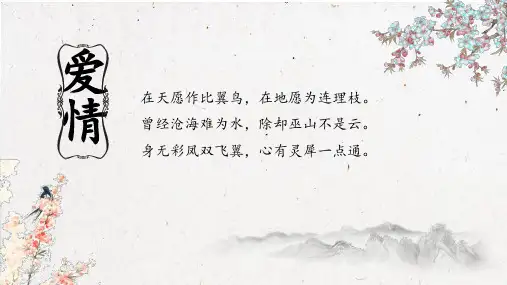 爱情
在天愿作比翼鸟，在地愿为连理枝。
曾经沧海难为水，除却巫山不是云。
身无彩凤双飞翼，心有灵犀一点通。